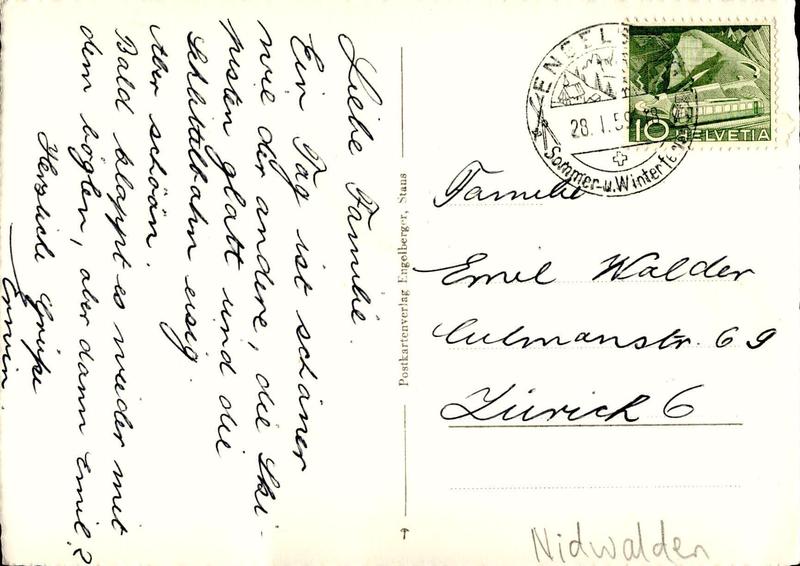 Liebe Familie.
Ein Tag ist schöner
wie der andere, die Ski-
pisten glatt und die
Schlittelbahn eisig.
Aber schöön.
Bald klappt es wieder mit
dem böglen, aber dann Emil!?
Herzliche Grüsse
Erwin.
Postkartenverlag Engelberger, Stans
ENGELB
28.1.59
Sommer- u. Winterferien
10 HELVETIA
Familie
Emil Walder
Culmanstr. 69
Zürich 6
Nidwalden